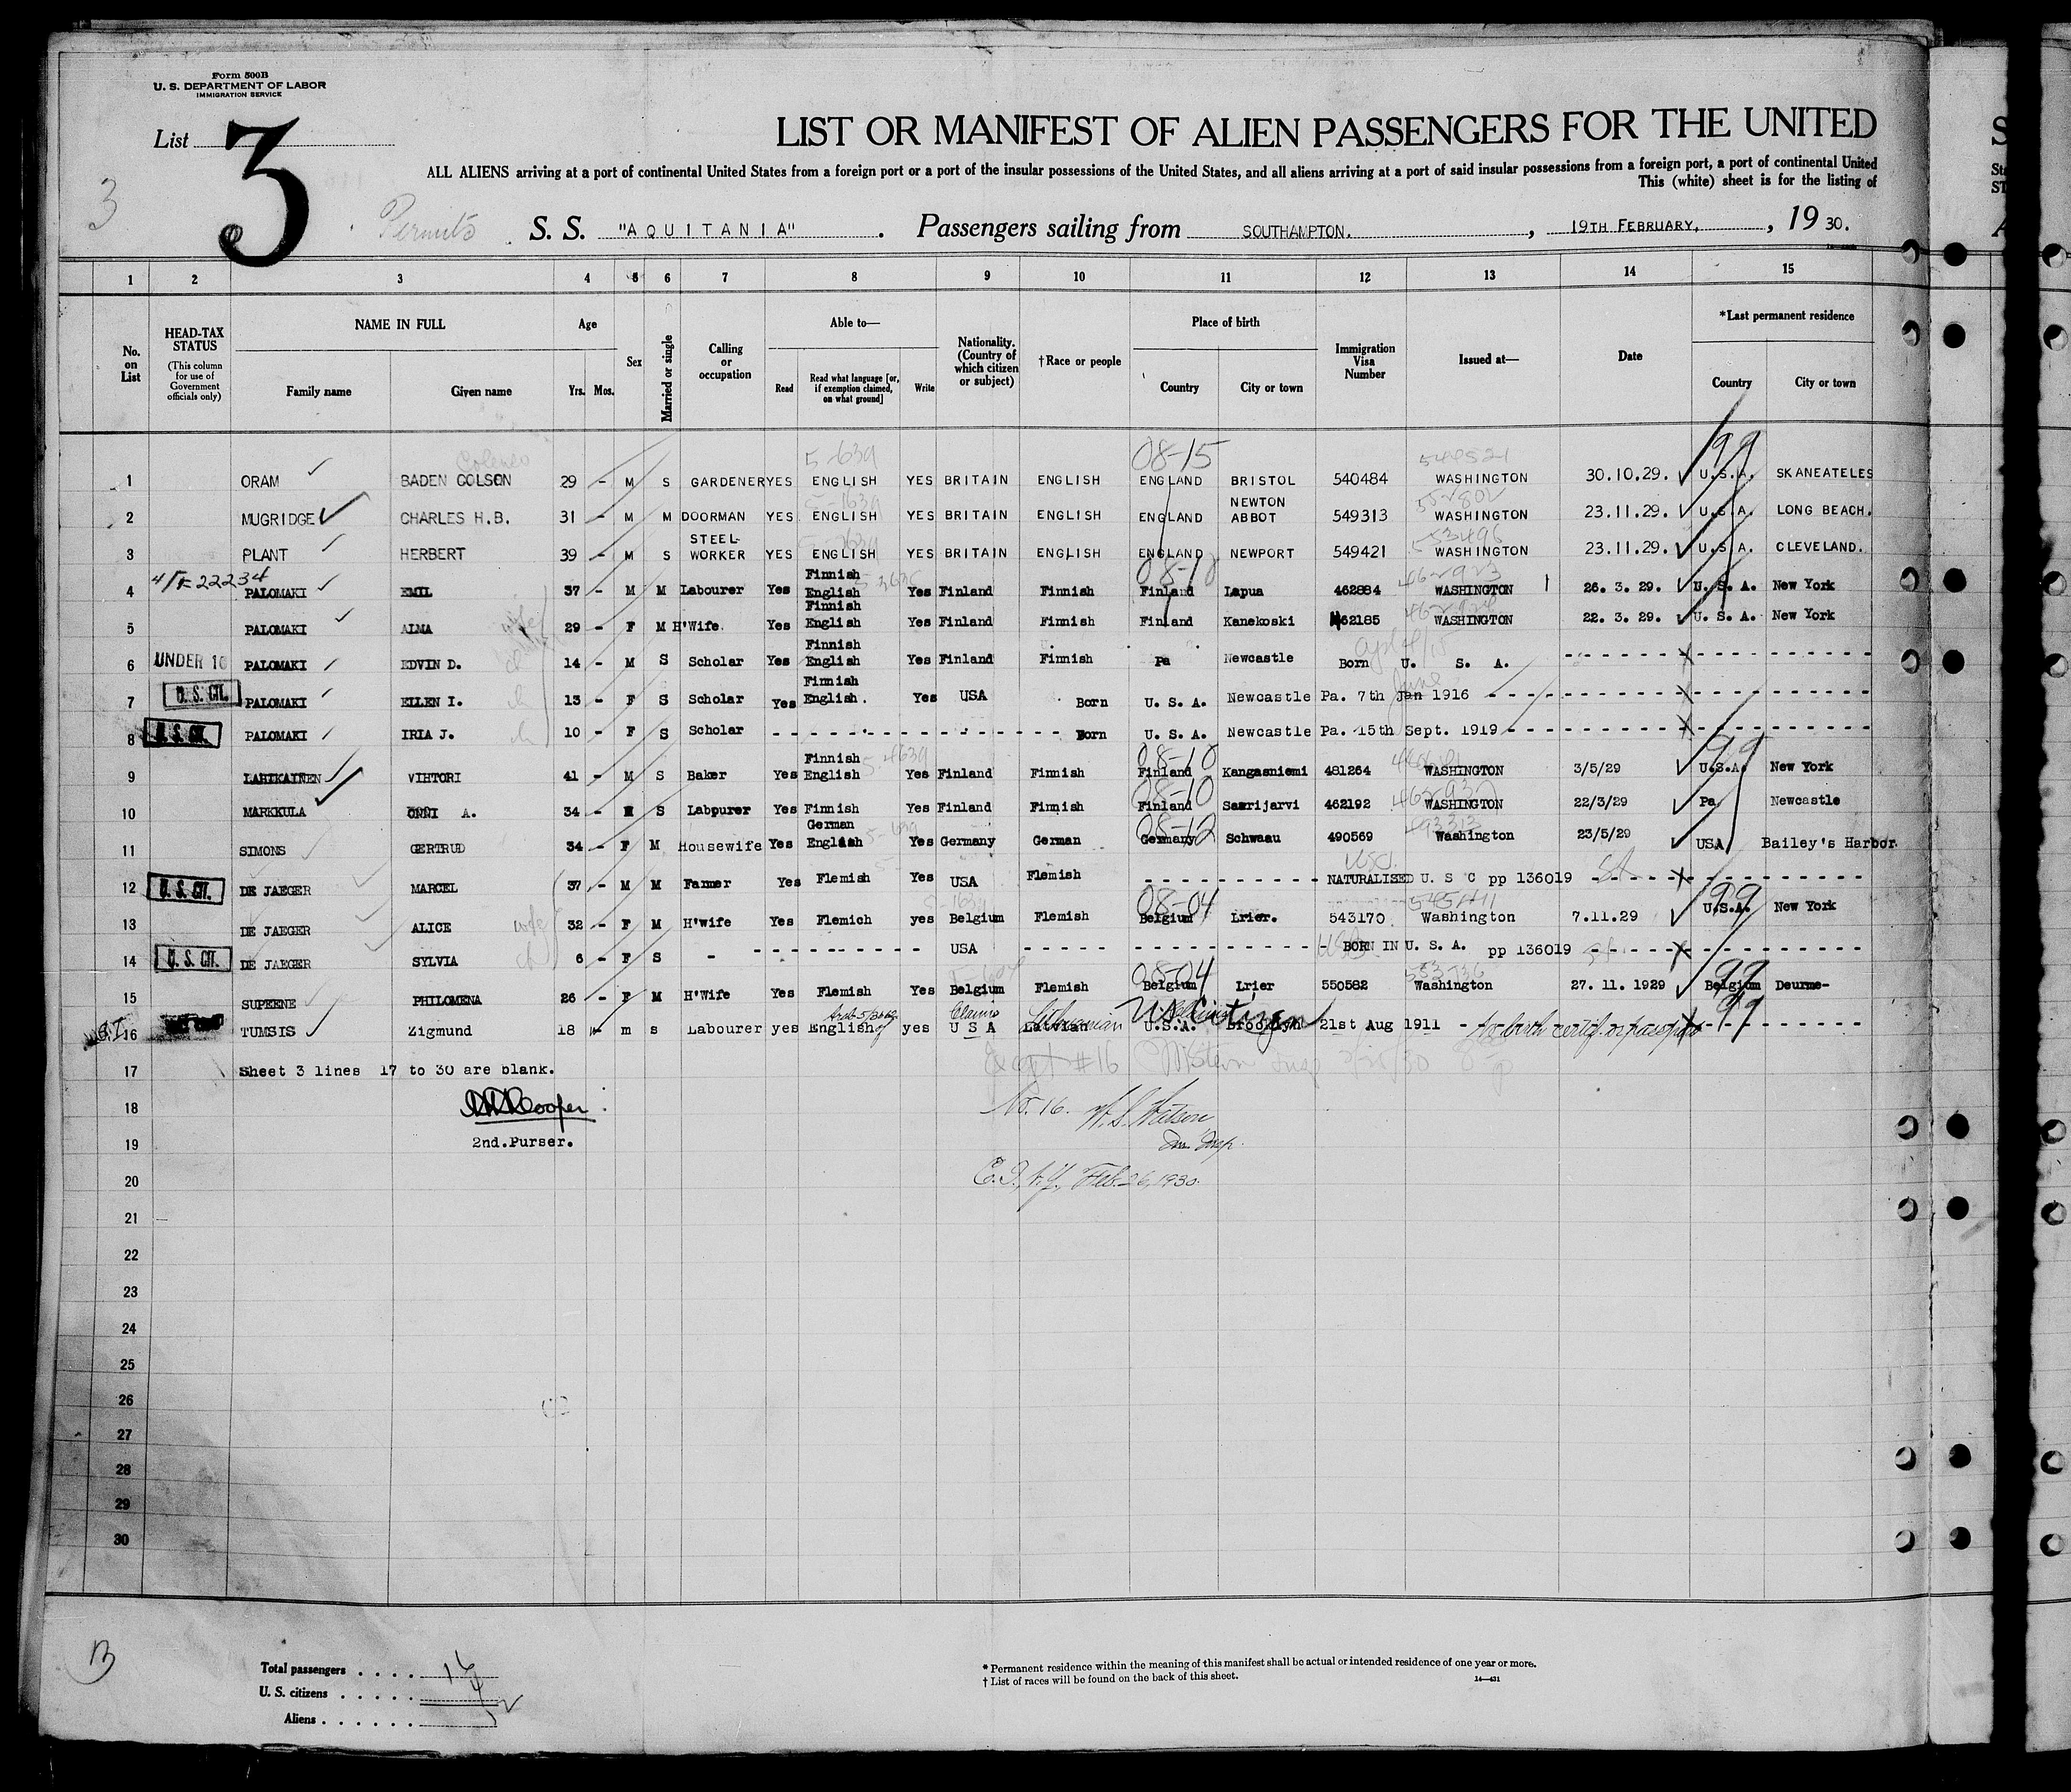 Form 500B
U. S. DEPARTMENT OF LABOR
IMMIGRATION SERVICE
List 3
3
LIST OR MANIFEST OF ALIEN PASSENGERS FOR THE UNITED
ALL ALIENS arriving at a port of continental United States from a foreign port or a port of the insular possessions of the United States, and all aliens arriving at a port of said insular possessions from a foreign port, a port of continental United
This (white) sheet is for the listing of
Permits S. S. "AQUITANIA". Passengers sailing from SOUTHAMPTON. , 19TH FEBRUARY, , 19 30.
1 2 3 4 5 6 7 8 9 10 11 12 13 14 15
No. on List
HEAD-TAX STATUS
(This column for use of Government officials only)
NAME IN FULL
Family name Given name
Age
Yrs. Mos.
Sex
Married or single
Calling or occupation
Able to—
Read Read what language [or, if exemption claimed, on what ground] Write
Nationality. (Country of which citizen or subject)
†Race or people
Place of birth
Country City or town
Immigration Visa Number
Issued at—
Date
*Last permanent residence
Country City or town
1 ORAM BADEN COLSON 29 - M S GARDENER YES ENGLISH YES BRITAIN ENGLISH 08-15 ENGLAND BRISTOL 540484 WASHINGTON 30.10.29. 99 U.S.A. SKANEATELES
2 MUGRIDGE CHARLES H.B. 31 - M M DOORMAN YES ENGLISH YES BRITAIN ENGLISH ENGLAND NEWTON ABBOT 549313 WASHINGTON 23.11.29. U.S.A. LONG BEACH.
3 PLANT HERBERT 39 - M S STEEL-WORKER YES ENGLISH YES BRITAIN ENGLISH ENGLAND NEWPORT 549421 553496 WASHINGTON 23.11.29. U.S.A. CLEVELAND.
4 PALOMAKI EMIL 37 - M M Labourer Yes Finnish English Yes Finland Finnish Finland Lapua 462884 462923 WASHINGTON 26. 3. 29. U. S. A. New York
5 PALOMAKI ALMA wife 29 - F M H'Wife. Yes Finnish English Yes Finland Finnish Finland Kanekoski 462185 WASHINGTON 22. 3. 29. U. S. A. New York
6 UNDER 16 PALOMAKI EDVIN D. ch 14 - M S Scholar Yes Finnish English Yes Finland Finnish Pa Newcastle Born U. S. A.
7 U. S. CIT. PALOMAKI ELLEN I. ch 13 - F S Scholar Yes Finnish English. Yes USA Born U. S. A. Newcastle Pa. 7th Jan 1916
8 U. S. CIT. PALOMAKI IRIA J. ch 10 - F S Scholar Born U. S. A. Newcastle Pa. 15th Sept. 1919
9 LAHIKAINEN VIHTORI 41 - M S Baker Yes Finnish English Yes Finland Finnish 08-10 Finland Kangasniemi 481264 WASHINGTON 3/5/29 99 U.S.A. New York
10 MARKKULA ONNI A. 34 - M S Labpurer Yes Finnish Yes Finland Finnish 08-10 Finland Saarijarvi 462192 462932 WASHINGTON 22/3/29 Pa Newcastle
11 SIMONS GERTRUD 34 - F M Housewife Yes German English Yes Germany German 08-12 Germany Schwaau 490569 493313 Washington 23/5/29 USA Bailey's Harbor
12 U. S. CIT. DE JAEGER MARCEL 37 - M M Farmer Yes Flemish Yes USA Flemish NATURALISED U S C pp 136019
13 DE JAEGER ALICE wife 32 - F M H'wife Yes Flemich yes Belgium Flemish 08-04 Belgium Lrier. 543170 Washington 7.11.29 99 U.S.A. New York
14 U. S. CIT. DE JAEGER SYLVIA ch 6 - F S - USA BORN IN U. S. A. pp 136019
15 SUPEENE PHILOMENA 26 - F M H'Wife Yes Flemish Yes Belgium Flemish 08-04 Belgium Lrier 550582 553736 Washington 27. 11. 1929 99 Belgium Deurme-
16 TUMSIS Zigmund 18 - m s Labourer yes English yes Claims U S A Latvian Lithuanian U.S.A. US Citizen Brooklyn 21st Aug 1911 - no birth certif. or passport 99
17 Sheet 3 lines 17 to 30 are blank.
18
2nd.Purser.
19
No. 16. W. S. Watson
Imm Insp.
20 E. I., N.Y., Feb. 26, 1930.
21
22
23
24
25
26
27
28
29
30
Total passengers . . . . 16
U. S. citizens . . . . . 4
Aliens . . . . . .
* Permanent residence within the meaning of this manifest shall be actual or intended residence of one year or more.
† List of races will be found on the back of this sheet.
14—431